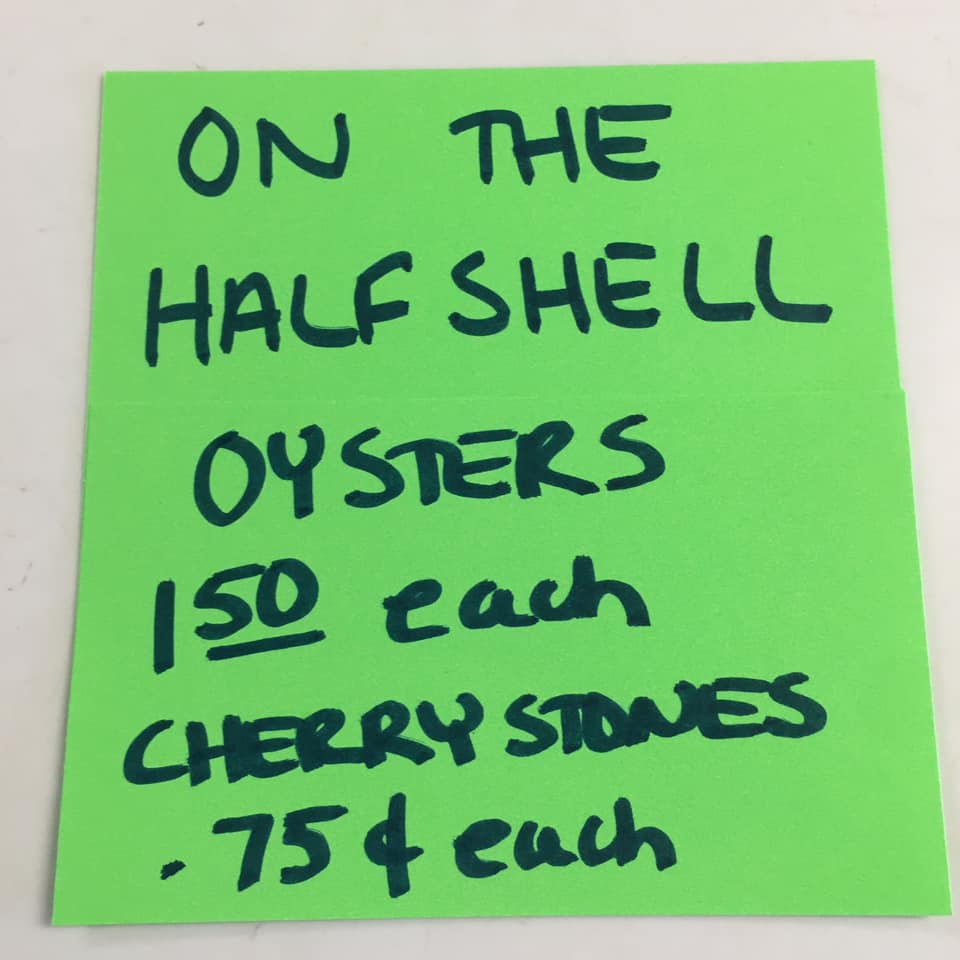 ON THE
HALF SHELL
OYSTERS
1 50 each
CHERRYSTONES
.75¢ each